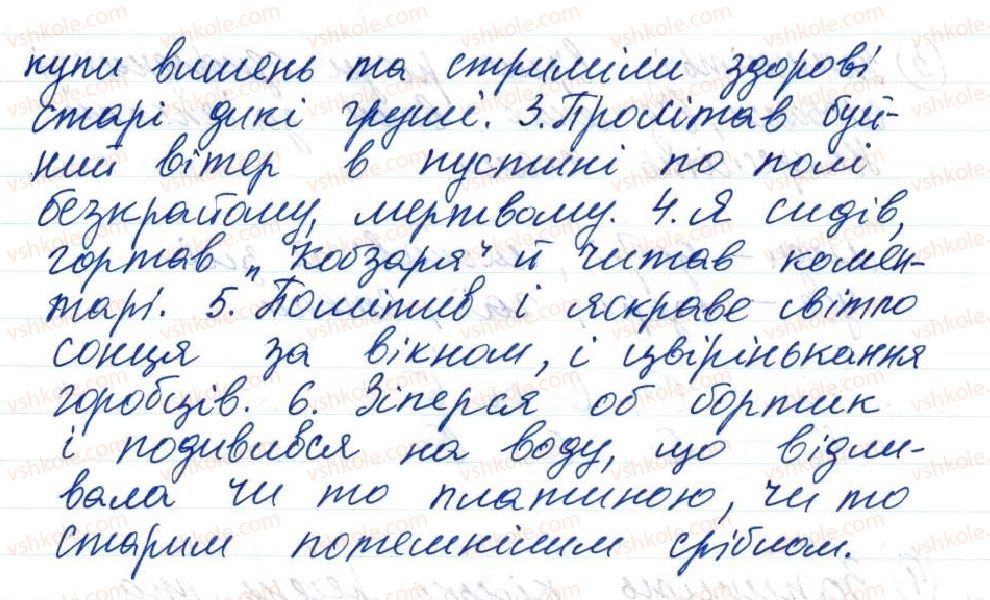 купи вишень та стриміли здорові
старі дикі груші. 3. Пролітав буй-
ний вітер в пустині по полі
безкрайому, мертвому. 4. Я сидів,
гортав „Кобзаря" й читав комен-
тарі. 5. Помітив і яскраве світло
сонця за вікном, і цвірінькання
горобців. 6. Зіперся об бортик
і подивився на воду, що відли-
вала чи то платиною, чи то
старим потемнілим сріблом.